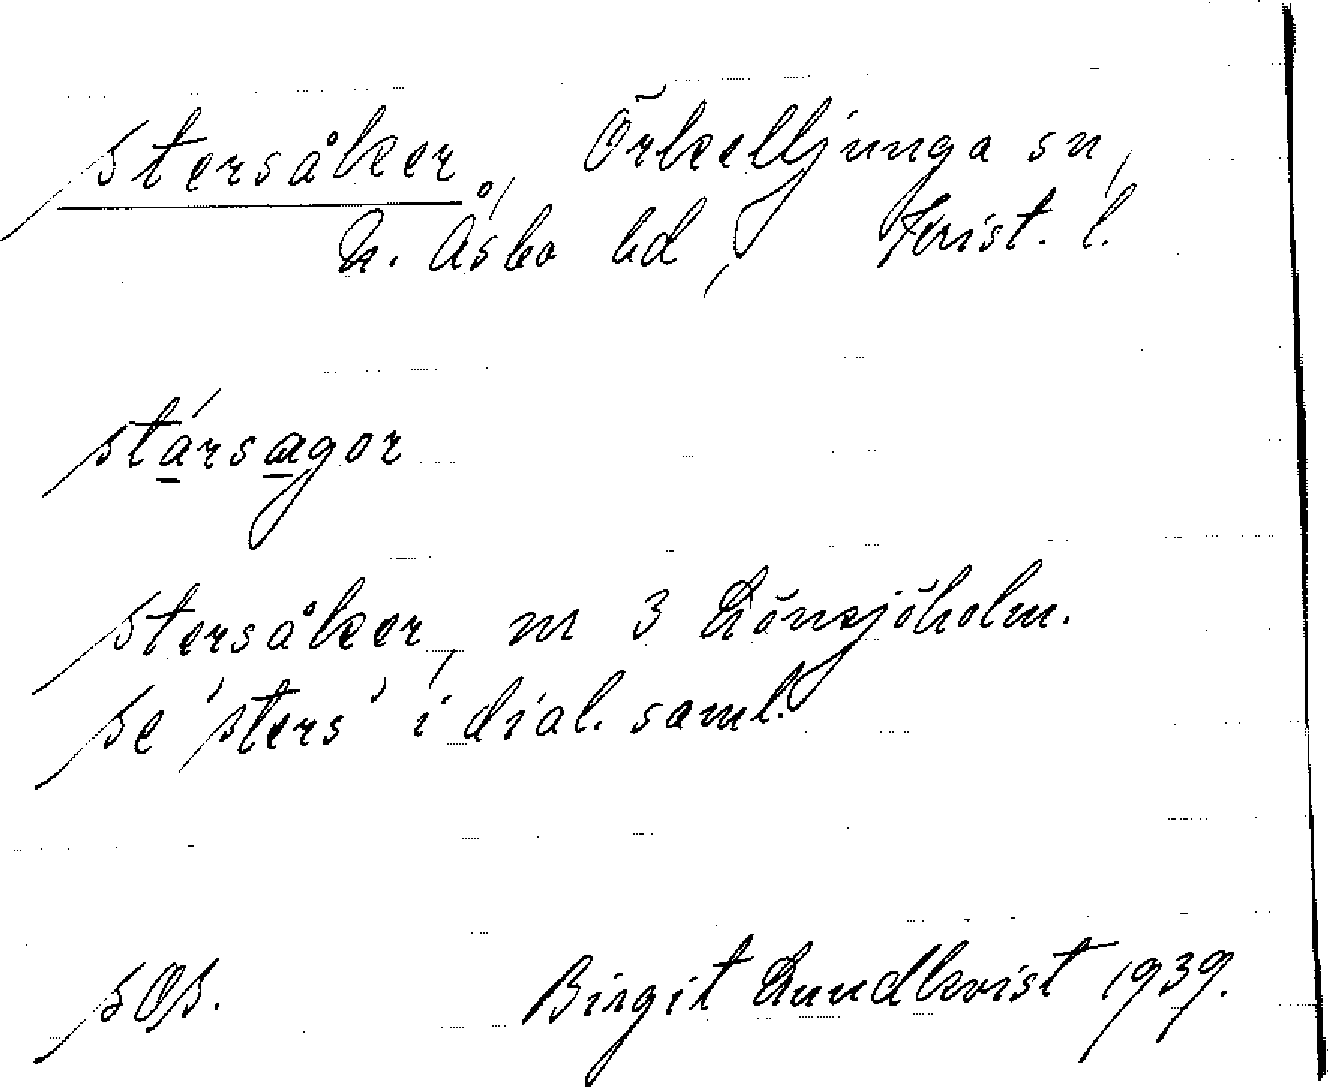 stersåker, Örkelljunga sn,
N. Åsbo hd, Krist. l.
stársagor
stersåker, m 3 Lönsjöholm.
se 'sters' i dial. saml.
Birgit Lundkvist 1939.